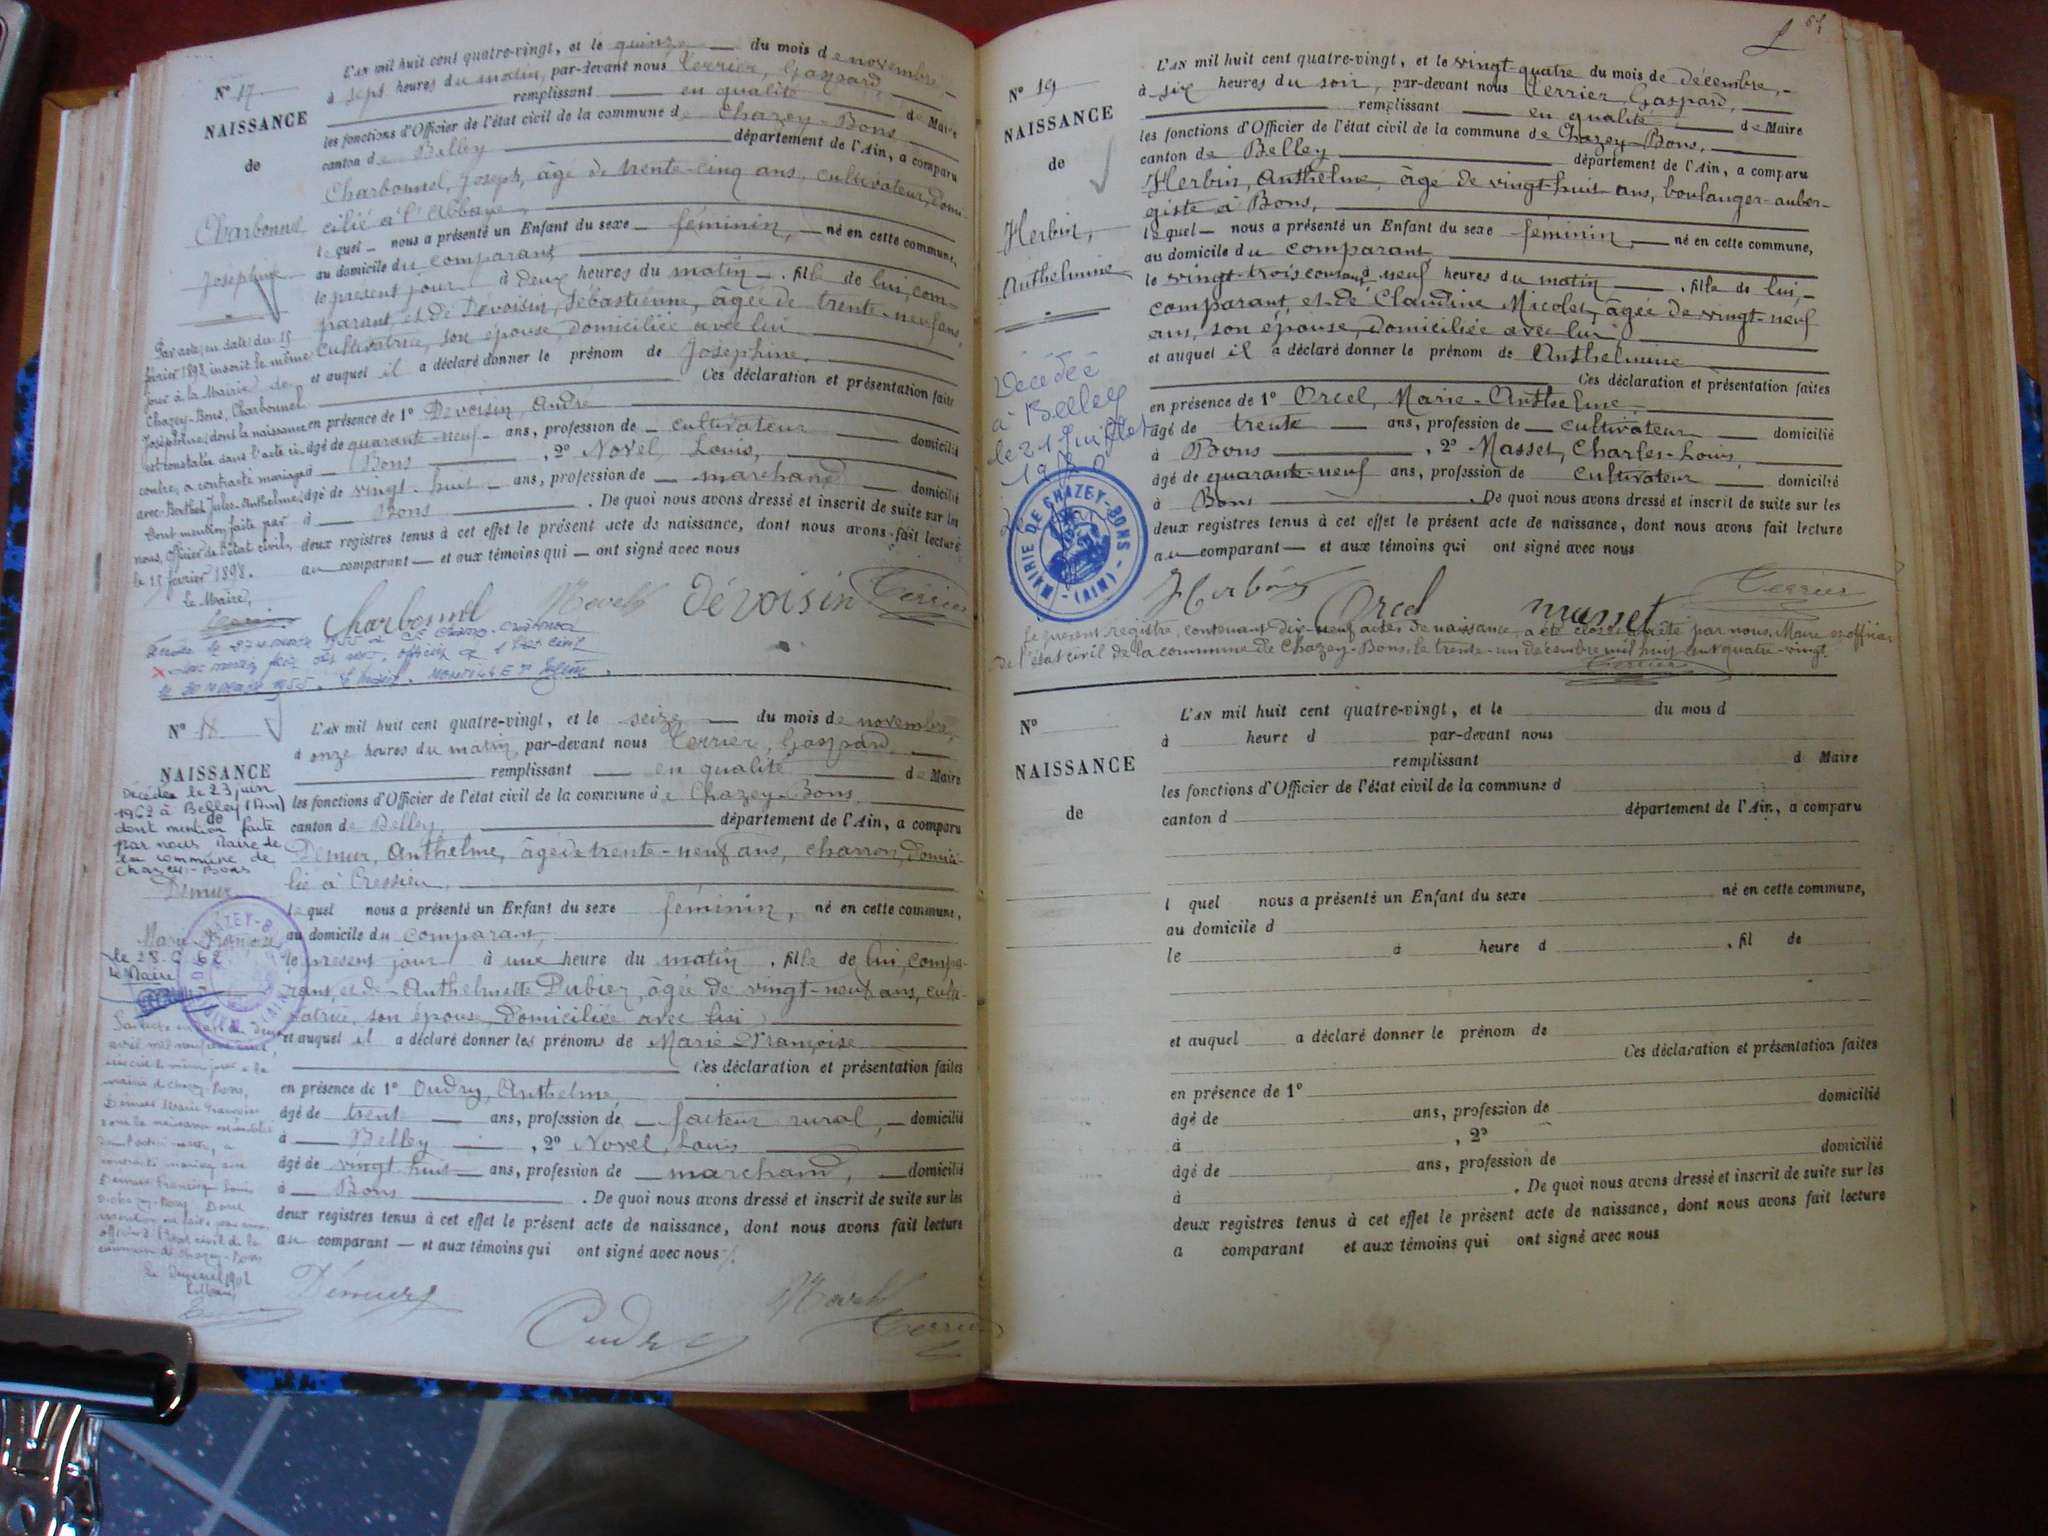 L'AN mil huit cent quatre-vingt, et le quinze du mois de novembre
à sept heures du matin, par-devant nous Terrier, Gaspard,
remplissant en qualité de Maire
les fonctions d'Officier de l'état civil de la commune de Chazey-Bons
canton de Belley département de l'Ain, a comparu
Charbonnel, Joseph, âgé de trente-cinq ans, cultivateur, domi-
cilié à l'Abbaye,
lequel nous a présenté un Enfant du sexe féminin, né en cette commune,
au domicile du comparant
le présent jour à deux heures du matin, fille de lui, com-
parant, et de Devoisin, Sébastienne, âgée de trente-neuf ans,
cultivatrice, son épouse, domiciliée avec lui
et auquel il a déclaré donner le prénom de Joséphine.
Ces déclaration et présentation faites
en présence de 1° Devoisin, André
âgé de quarante-neuf ans, profession de cultivateur domicilié
à Bons, 2° Novel, Louis,
âgé de vingt-huit ans, profession de marchand domicilié
à Bons. De quoi nous avons dressé et inscrit de suite sur les
deux registres tenus à cet effet le présent acte de naissance, dont nous avons fait lecture
au comparant et aux témoins qui ont signé avec nous
Charbonnel Novel Dévoisin Terrier
N° 17
NAISSANCE
de
Charbonnel
Joséphine
Par acte en date du 15
février 1898, inscrit le même
jour à la Mairie de
Chazey-Bons, Charbonnel
Joséphine, dont la naissance
est constatée dans l'acte ci-
contre, a contracté mariage
avec Berthet Jules-Anthelme,
Dont mention faite par
nous, officier de l'état civil,
le 15 février 1898.
Le Maire,
Terrier
N° 18
NAISSANCE
de
Décédée le 23 juin
1962 à Belley (Ain)
dont mention faite
par nous Maire de
la commune de
Chazey-Bons
Demur
Marie Françoise
le Maire
L'AN mil huit cent quatre-vingt, et le seize du mois de novembre,
à onze heures du matin, par-devant nous Terrier, Gaspard,
remplissant en qualité de Maire
les fonctions d'Officier de l'état civil de la commune de Chazey-Bons,
canton de Belley département de l'Ain, a comparu
Demur, Anthelme, âgé de trente-neuf ans, charron, domici-
lié à Cressieu,
lequel nous a présenté un Enfant du sexe féminin, né en cette commune,
au domicile du comparant,
le présent jour à une heure du matin, fille de lui, compa-
rant, et de Anthelmette Dubiez, âgée de vingt-neuf ans, culti-
vatrice, son épouse, domiciliée avec lui
et auquel il a déclaré donner les prénoms de Marie Françoise
Ces déclaration et présentation faites
en présence de 1° Oudry, Anthelme,
âgé de trente ans, profession de facteur rural, domicilié
à Belley, 2° Novel, Louis
âgé de vingt huit ans, profession de marchand, domicilié
à Bons. De quoi nous avons dressé et inscrit de suite sur les
deux registres tenus à cet effet le présent acte de naissance, dont nous avons fait lecture
au comparant et aux témoins qui ont signé avec nous
Démur Oudry Novel Terrier
N° 19
NAISSANCE
de
Herbin,
Anthelmine
Décédée
à Belley
le 21 juillet
MAIRIE DE CHAZEY-BONS (AIN)
L'AN mil huit cent quatre-vingt, et le vingt-quatre du mois de décembre,
à six heures du soir, par-devant nous Terrier, Gaspard,
remplissant en qualité de Maire
les fonctions d'Officier de l'état civil de la commune de Chazey-Bons,
canton de Belley département de l'Ain, a comparu
Herbin, Anthelme, âgé de vingt-huit ans, boulanger-auber-
giste à Bons,
lequel nous a présenté un Enfant du sexe féminin, né en cette commune,
au domicile du comparant
le vingt-trois courant à neuf heures du matin, fille de lui,
comparant, et de Claudine Micolet, âgée de vingt-neuf
ans, son épouse, domiciliée avec lui
et auquel il a déclaré donner le prénom de Anthelmine
Ces déclaration et présentation faites
en présence de 1° Orcel, Marie-Anthelme,
âgé de trente ans, profession de cultivateur domicilié
à Bons, 2° Masset, Charles-Louis,
âgé de quarante-neuf ans, profession de cultivateur domicilié
à Bons. De quoi nous avons dressé et inscrit de suite sur les
deux registres tenus à cet effet le présent acte de naissance, dont nous avons fait lecture
au comparant et aux témoins qui ont signé avec nous
Herbin Orcel masset Terrier
Le présent registre, contenant dix-neuf actes de naissance, a été clos et arrêté par nous, Maire et officier
de l'état civil de la commune de Chazey-Bons, le trente-un décembre mil huit cent quatre-vingt.
Terrier
N°
NAISSANCE
de
L'AN mil huit cent quatre-vingt, et le du mois d
à heure d par-devant nous
remplissant d Maire
les fonctions d'Officier de l'état civil de la commune d
canton d département de l'Ain, a comparu
l quel nous a présenté un Enfant du sexe né en cette commune,
au domicile d
le à heure d , fil de
et auquel a déclaré donner le prénom de
Ces déclaration et présentation faites
en présence de 1°
âgé de ans, profession de domicilié
à , 2°
âgé de ans, profession de domicilié
à . De quoi nous avons dressé et inscrit de suite sur les
deux registres tenus à cet effet le présent acte de naissance, dont nous avons fait lecture
a comparant et aux témoins qui ont signé avec nous